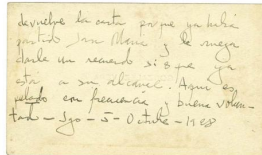 devuelve la carta porque ya había
partido San Mena y le ruego
darle un recuerdo si es que ya
está a su alcance. Aquí es
helado con frecuencia y buena volun-
tad - Sgo - 5 - Octubre - 1928